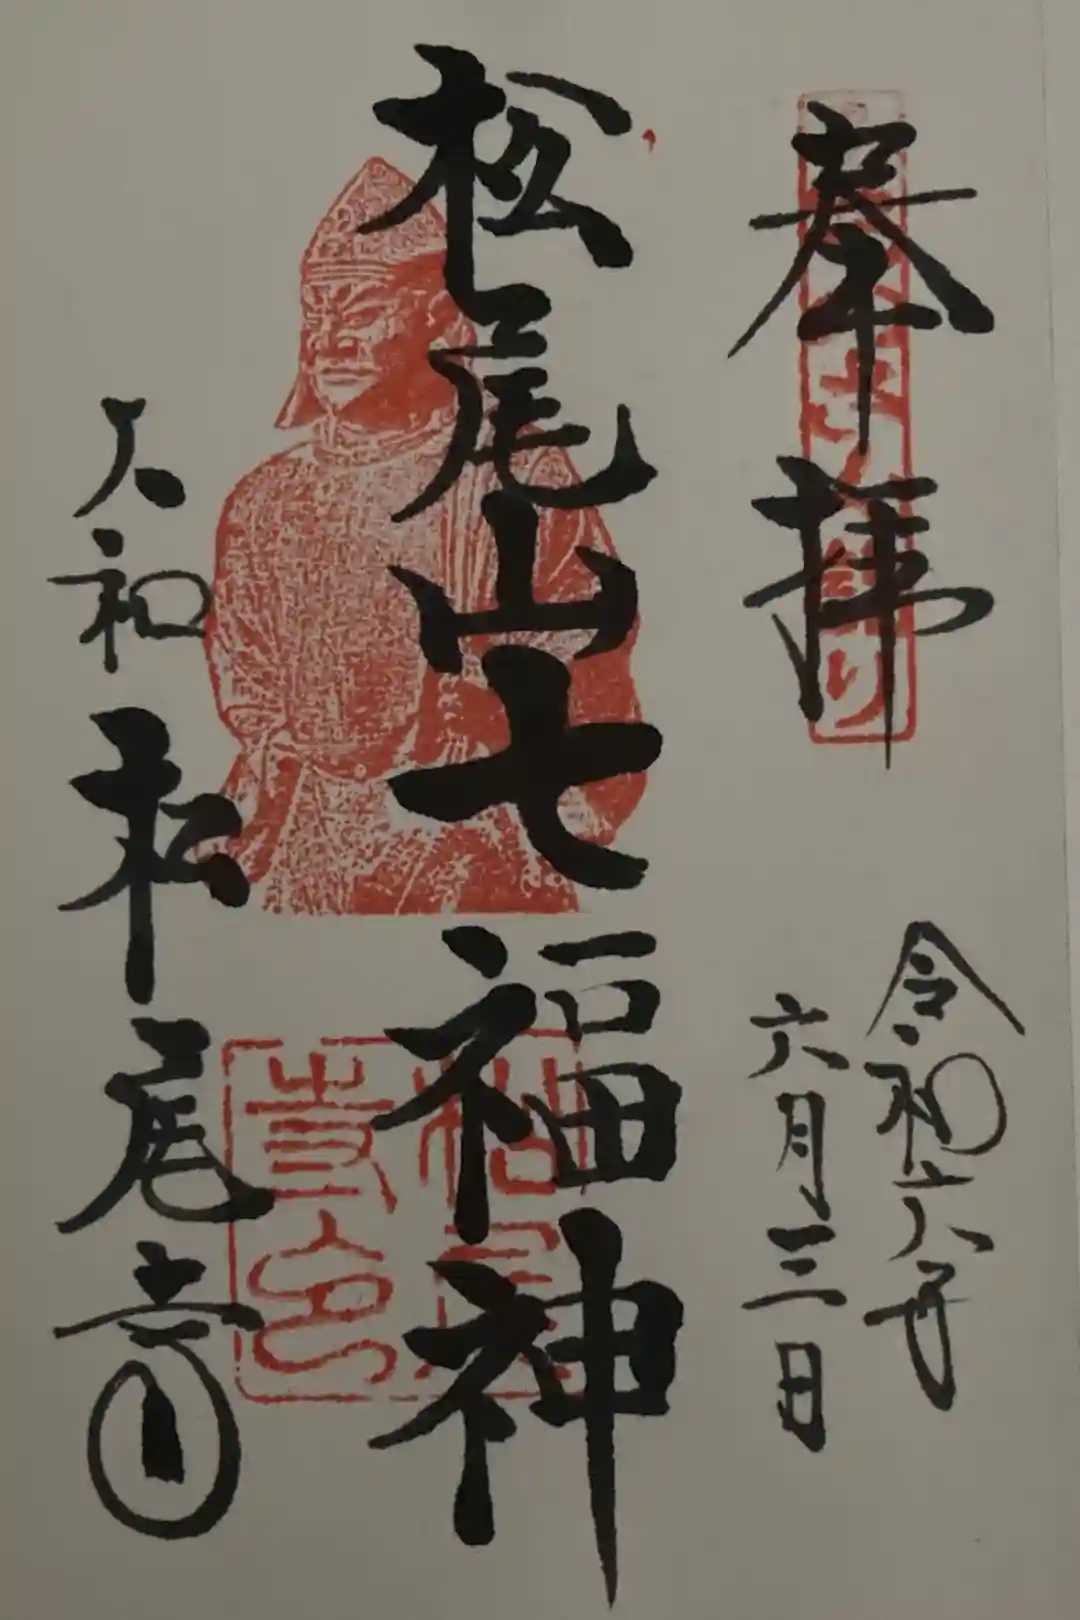 奉拝
令和六年
六月三日
松尾山七福神
大和松尾寺